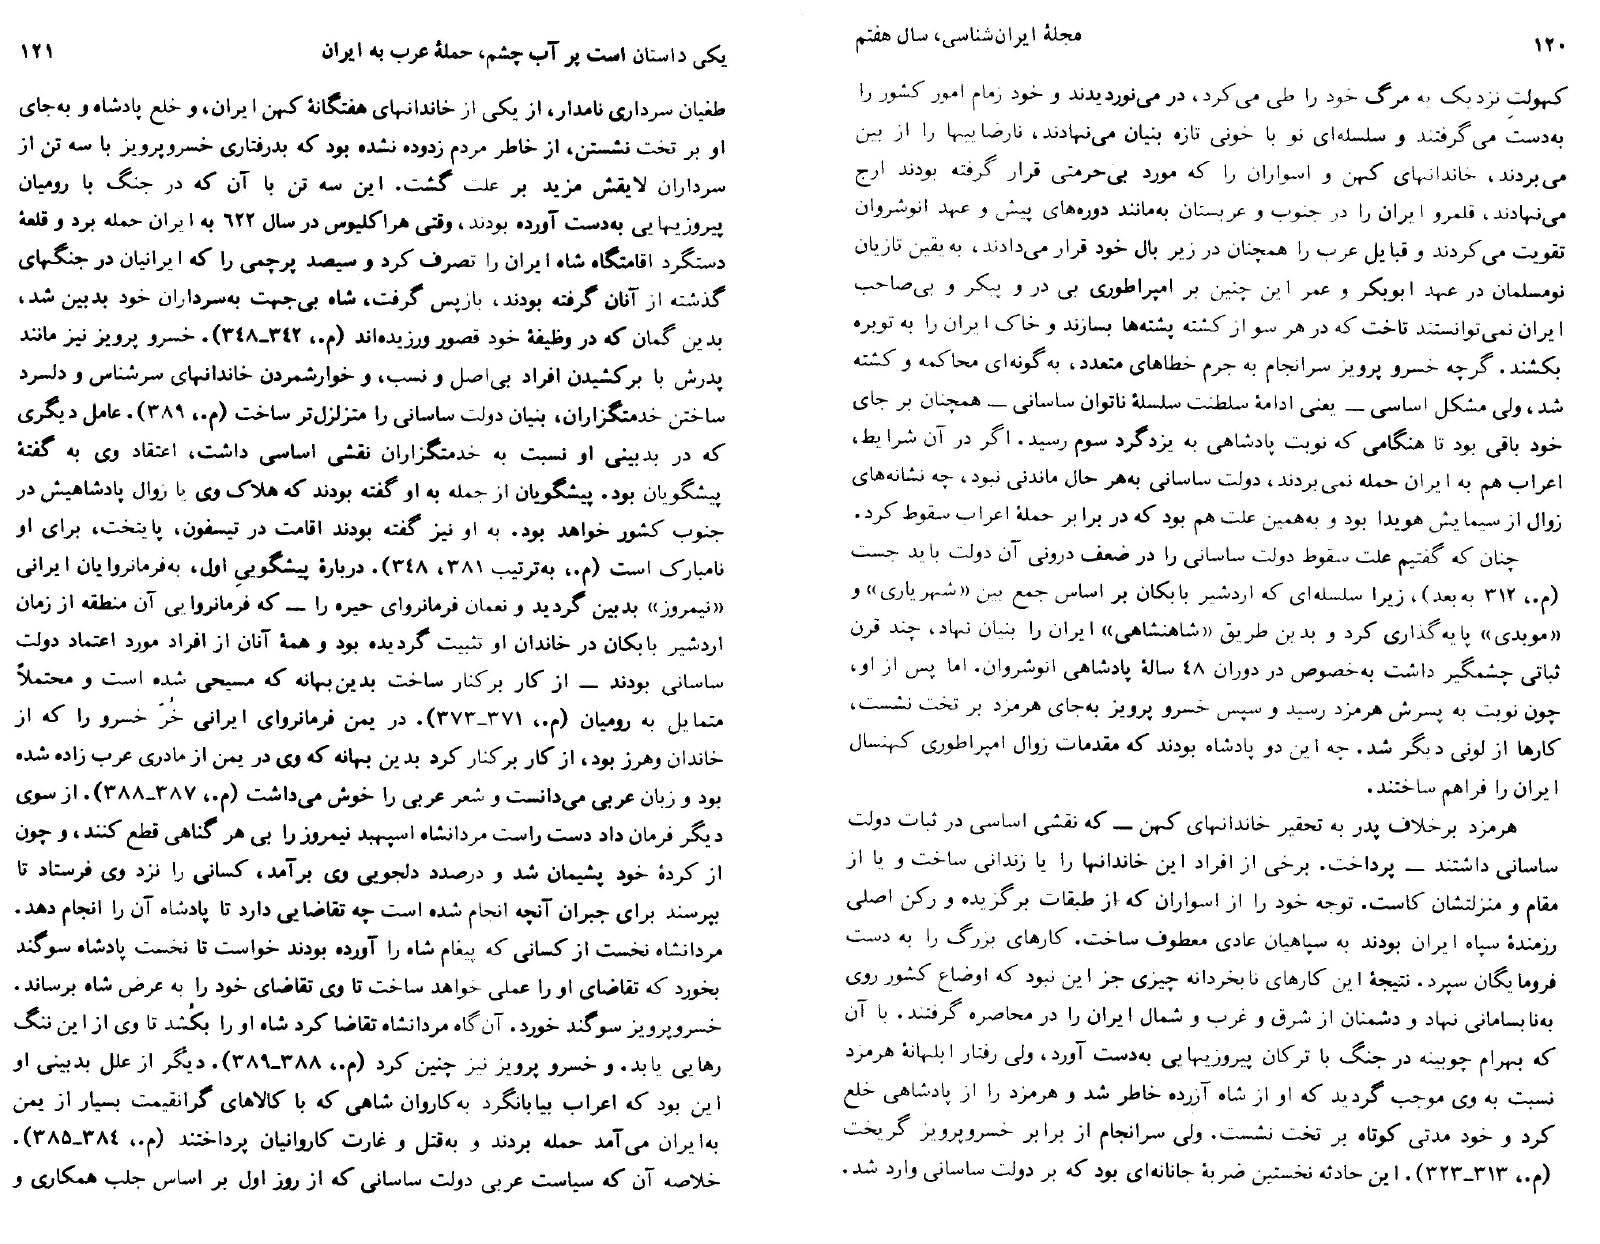 ۱۲۰
مجلهٔ ایران‌شناسی، سال هفتم
کهولتِ نزدیک به مرگ خود را طی می‌کرد، در می‌نوردیدند و خود زمام امور کشور را
به‌دست می‌گرفتند و سلسله‌ای نو با خونی تازه بنیان می‌نهادند، نارضاییها را از بین
می‌بردند، خاندانهای کهن و اسواران را که مورد بی‌حرمتی قرار گرفته بودند ارج
می‌نهادند، قلمرو ایران را در جنوب و عربستان به‌مانند دوره‌های پیش و عهد انوشروان
تقویت می‌کردند و قبایل عرب را همچنان در زیر بال خود قرار می‌دادند، به‌یقین تازیان
نومسلمان در عهد ابوبکر و عمر این چنین بر امپراطوری بی در و پیکر و بی‌صاحب
ایران نمی‌توانستند تاخت که در هر سو از کشته پشته‌ها بسازند و خاک ایران را به توبره
بکشند. گرچه خسرو پرویز سرانجام به جرم خطاهای متعدد، به‌گونه‌ای محاکمه و کشته
شد، ولی مشکل اساسی ــ یعنی ادامهٔ سلطنت سلسلهٔ ناتوان ساسانی ــ همچنان بر جای
خود باقی بود تا هنگامی که نوبت پادشاهی به یزدگرد سوم رسید. اگر در آن شرایط،
اعراب هم به ایران حمله نمی‌بردند، دولت ساسانی به‌هر حال ماندنی نبود، چه نشانه‌های
زوال از سیمایش هویدا بود و به‌همین علت هم بود که در برابر حملهٔ اعراب سقوط کرد.
چنان که گفتیم علت سقوط دولت ساسانی را در ضعف درونی آن دولت باید جست
(م.، ۳۱۲ به‌بعد)، زیرا سلسله‌ای که اردشیر بابکان بر اساس جمع بین «شهریاری» و
«موبدی» پایه‌گذاری کرد و بدین طریق «شاهنشاهی» ایران را بنیان نهاد، چند قرن
ثباتی چشمگیر داشت به‌خصوص در دوران ۴۸ سالهٔ پادشاهی انوشروان. اما پس از او،
چون نوبت به پسرش هرمزد رسید و سپس خسرو پرویز به‌جای هرمزد بر تخت نشست،
کارها از لونی دیگر شد. چه این دو پادشاه بودند که مقدمات زوال امپراطوری کهنسال
ایران را فراهم ساختند.
هرمزد برخلاف پدر به تحقیر خاندانهای کهن ــ که نقشی اساسی در ثبات دولت
ساسانی داشتند ــ پرداخت. برخی از افراد این خاندانها را یا زندانی ساخت و یا از
مقام و منزلتشان کاست. توجه خود را از اسواران که از طبقات برگزیده و رکن اصلی
رزمندهٔ سپاه ایران بودند به سپاهیان عادی معطوف ساخت. کارهای بزرگ را به دست
فرومایگان سپرد. نتیجهٔ این کارهای نابخردانه چیزی جز این نبود که اوضاع کشور روی
به‌نابسامانی نهاد و دشمنان از شرق و غرب و شمال ایران را در محاصره گرفتند. با آن
که بهرام چوبینه در جنگ با ترکان پیروزیهایی به‌دست آورد، ولی رفتار ابلهانهٔ هرمزد
نسبت به وی موجب گردید که او از شاه آزرده خاطر شد و هرمزد را از پادشاهی خلع
کرد و خود مدتی کوتاه بر تخت نشست. ولی سرانجام از برابر خسروپرویز گریخت
(م.، ۳۱۳ــ۳۲۳). این حادثه نخستین ضربهٔ جانانه‌ای بود که بر دولت ساسانی وارد شد.
یکی داستان است پر آب چشم، حملهٔ عرب به ایران
۱۲۱
طغیان سرداری نامدار، از یکی از خاندانهای هفتگانهٔ کهن ایران، و خلع پادشاه و به‌جای
او بر تخت نشستن، از خاطر مردم زدوده نشده بود که بدرفتاری خسروپرویز با سه تن از
سرداران لایقش مزید بر علت گشت. این سه تن با آن که در جنگ با رومیان
پیروزیهایی به‌دست آورده بودند، وقتی هراکلیوس در سال ۶۲۲ به ایران حمله برد و قلعهٔ
دستگرد اقامتگاه شاه ایران را تصرف کرد و سیصد پرچمی را که ایرانیان در جنگهای
گذشته از آنان گرفته بودند، بازپس گرفت، شاه بی‌جهت به‌سرداران خود بدبین شد،
بدین گمان که در وظیفهٔ خود قصور ورزیده‌اند (م.، ۳۴۲ــ۳۴۸). خسرو پرویز نیز مانند
پدرش با برکشیدن افراد بی‌اصل و نسب، و خوارشمردن خاندانهای سرشناس و دلسرد
ساختن خدمتگزاران، بنیان دولت ساسانی را متزلزل‌تر ساخت (م.، ۳۸۹). عامل دیگری
که در بدبینی او نسبت به خدمتگزاران نقشی اساسی داشت، اعتقاد وی به گفتهٔ
پیشگویان بود. پیشگویان از جمله به او گفته بودند که هلاک وی یا زوال پادشاهیش در
جنوب کشور خواهد بود. به او نیز گفته بودند اقامت در تیسفون، پایتخت، برای او
نامبارک است (م.، به‌ترتیب ۳۸۱، ۳۴۸). دربارهٔ پیشگویی اول، به‌فرمانروایان ایرانی
«نیمروز» بدبین گردید و نعمان فرمانروای حیره را ــ که فرمانروایی آن منطقه از زمان
اردشیر بابکان در خاندان او تثبیت گردیده بود و همهٔ آنان از افراد مورد اعتماد دولت
ساسانی بودند ــ از کار برکنار ساخت بدین‌بهانه که مسیحی شده است و محتملاً
متمایل به رومیان (م.، ۳۷۱ــ۳۷۳). در یمن فرمانروای ایرانی خُرّ خسرو را که از
خاندان وهرز بود، از کار برکنار کرد بدین بهانه که وی در یمن از مادری عرب زاده شده
بود و زبان عربی می‌دانست و شعر عربی را خوش می‌داشت (م.، ۳۸۷ــ۳۸۸). از سوی
دیگر فرمان داد دست راست مردانشاه اسپهبد نیمروز را بی هر گناهی قطع کنند، و چون
از کردهٔ خود پشیمان شد و درصدد دلجویی وی برآمد، کسانی را نزد وی فرستاد تا
بپرسند برای جبران آنچه انجام شده است چه تقاضایی دارد تا پادشاه آن را انجام دهد.
مردانشاه نخست از کسانی که پیغام شاه را آورده بودند خواست تا نخست پادشاه سوگند
بخورد که تقاضای او را عملی خواهد ساخت تا وی تقاضای خود را به عرض شاه برساند.
خسروپرویز سوگند خورد. آن‌گاه مردانشاه تقاضا کرد شاه او را بکُشد تا وی از این ننگ
رهایی یابد. و خسرو پرویز نیز چنین کرد (م.، ۳۸۸ــ۳۸۹). دیگر از علل بدبینی او
این بود که اعراب بیابانگرد به‌کاروان شاهی که با کالاهای گرانقیمت بسیار از یمن
به‌ایران می‌آمد حمله بردند و به‌قتل و غارت کاروانیان پرداختند (م.، ۳۸۴ــ۳۸۵).
خلاصه آن که سیاست عربی دولت ساسانی که از روز اول بر اساس جلب همکاری و